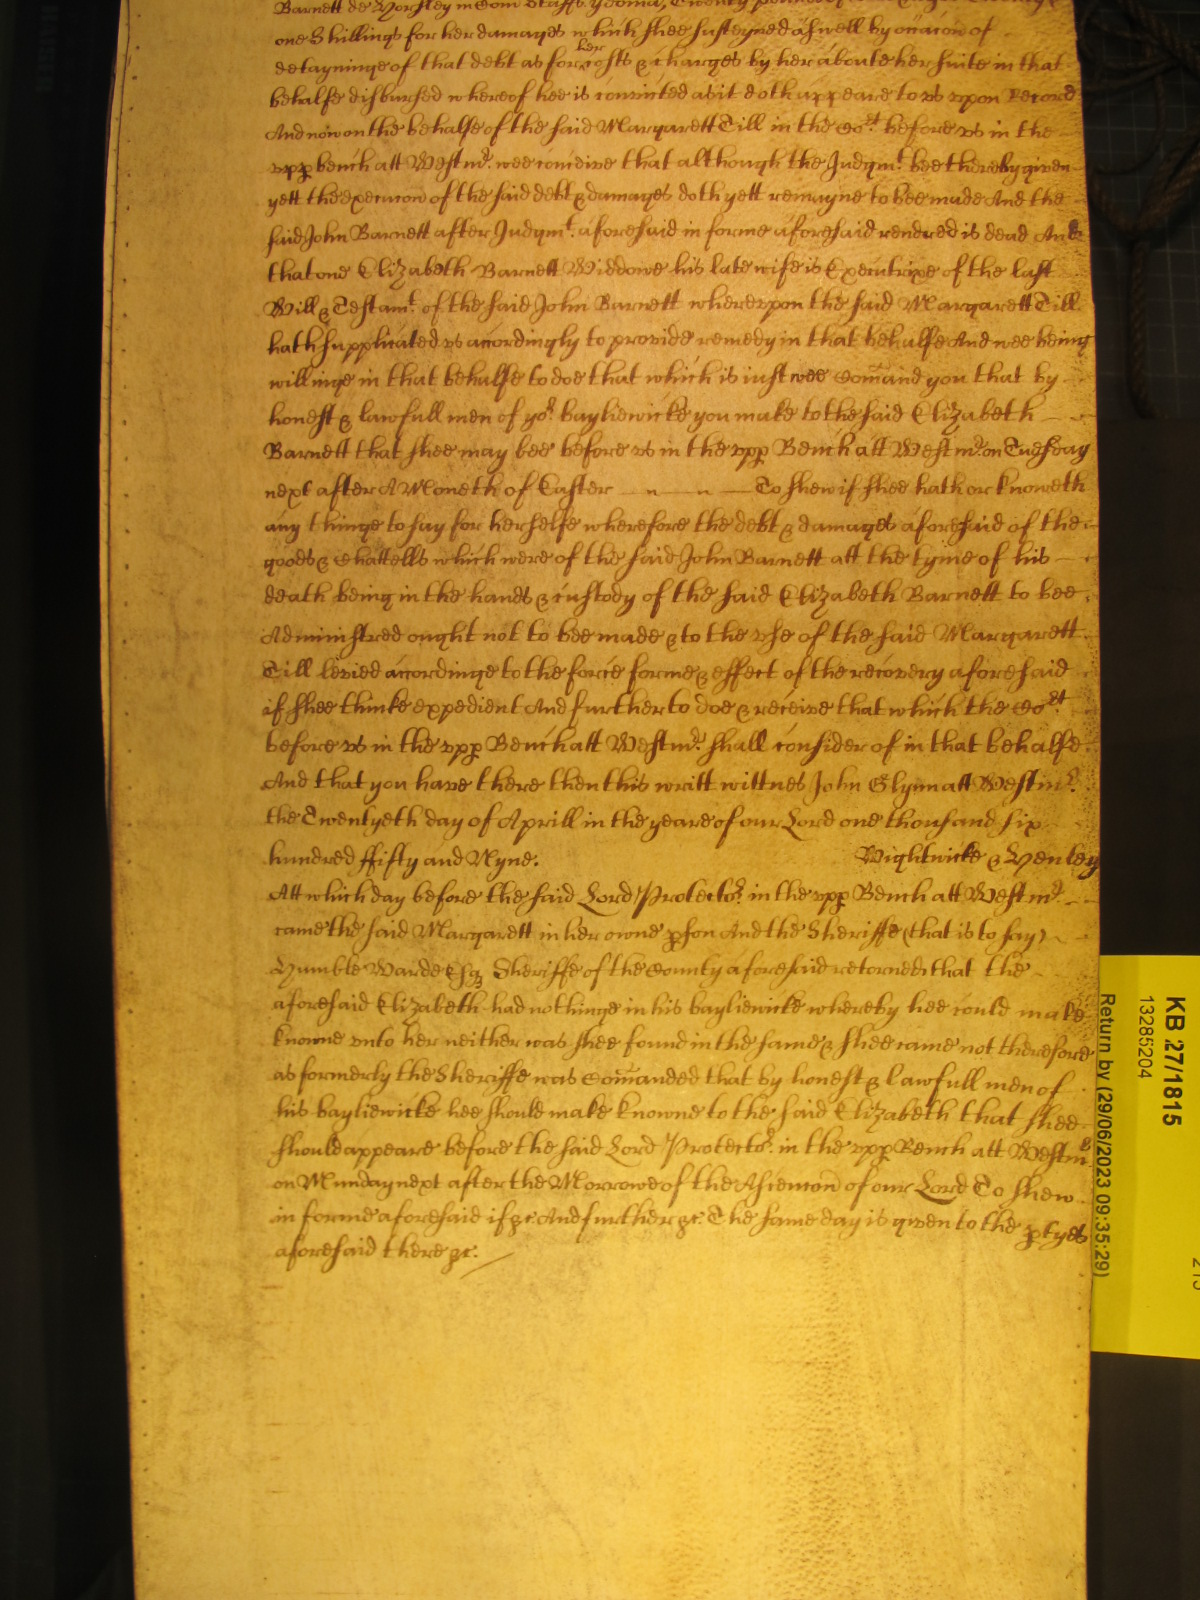 Barnett de Horsley in Com Staff yeoman, Twenty
one Shillings for her damages which shee susteyned aswell by occacon of
detayninge of that debt as for her costs & charges by her aboute her suite in that
behalfe disbursed whereof hee is convicted as it doth appeare to us upon Record
And now on the behalfe of the said Margarett Till in the Cort before us in the
upp bench att Westmr. wee conceive that although the Judgmt. bee thereby given
yett the execucion of the said debt & damages doth yett remayne to bee made And the
said John Barnett after Judgmt. aforesaid in forme aforesaid rendred is dead And
that one Elizabeth Barnett Widdowe his late wife is Executrixe of the last
Will & Testamt. of the said John Barnett whereupon the said Margarett Till
hath supplicated us accordingly to provide remedy in that behalfe And wee being
willinge in that behalfe to doe that which is iust wee Comand you that by
honest & lawfull men of yor bayliewicke you make to the said Elizabeth
Barnett that shee may bee before us in the upp Bench att Westmr. on Tuesday
next after A Moneth of Easter To shew if shee hath or knoweth
any thinge to say for herselfe wherefore the debt & damages aforesaid of the
goods & Chattells which were of the said John Barnett att the tyme of his
death being in the hands & custody of the said Elizabeth Barnett to bee
Administred ought not to bee made & to the use of the said Margarett
Till levied accordinge to the force forme & effect of the recovery aforesaid
if shee thinke expedient And further to doe & receive that which the Cort
before us in the upp Bench att Westmr. shall consider of in that behalfe
And that you have there then this writt wittnes John Glynn att Westmr.
the Twentyeth day of Aprill in the yeare of our Lord one thousand six
hundred ffifty and Nyne. Wightwicke & Henley
Att which day before the said Lord Protector. in the upp Bench att Westmr.
came the said Margarett in her owne pson And the Sheriffe (that is to say)
Humble Warde Esq Sheriffe of the County aforesaid retorned that the
aforesaid Elizabeth had nothinge in his bayliewicke whereby hee could make
knowne unto her neither was shee found in the same & shee came not therefore
as formerly the Sheriffe was Comanded that by honest & lawfull men of
his bayliewicke hee should make knowne to the said Elizabeth that shee
should appeare before the said Lord Protector. in the upp Bench att Westmr
on Munday next after the Morrowe of the Ascencon of our Lord To shew
in forme aforesaid if &c. And further &c. The same day is given to the ptyes
aforesaid there &c.
KB 27/1815
13285204
Return by (29/06/2023 09:35:29)